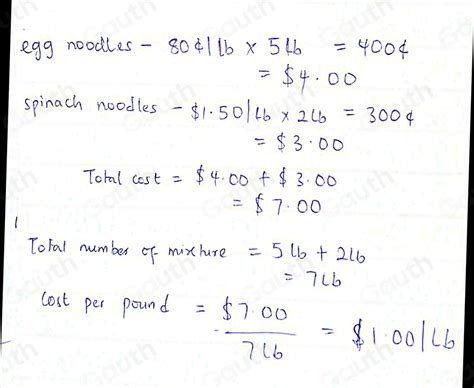 egg noodles - 80¢/lb × 5lb = 400¢
= $4.00
spinach noodles - $1.50/lb × 2lb = 300¢
= $3.00
Total cost = $4.00 + $3.00
= $7.00
Total number of mixture = 5lb + 2lb
= 7lb
Cost per pound = $7.00
7lb
= $1.00/lb